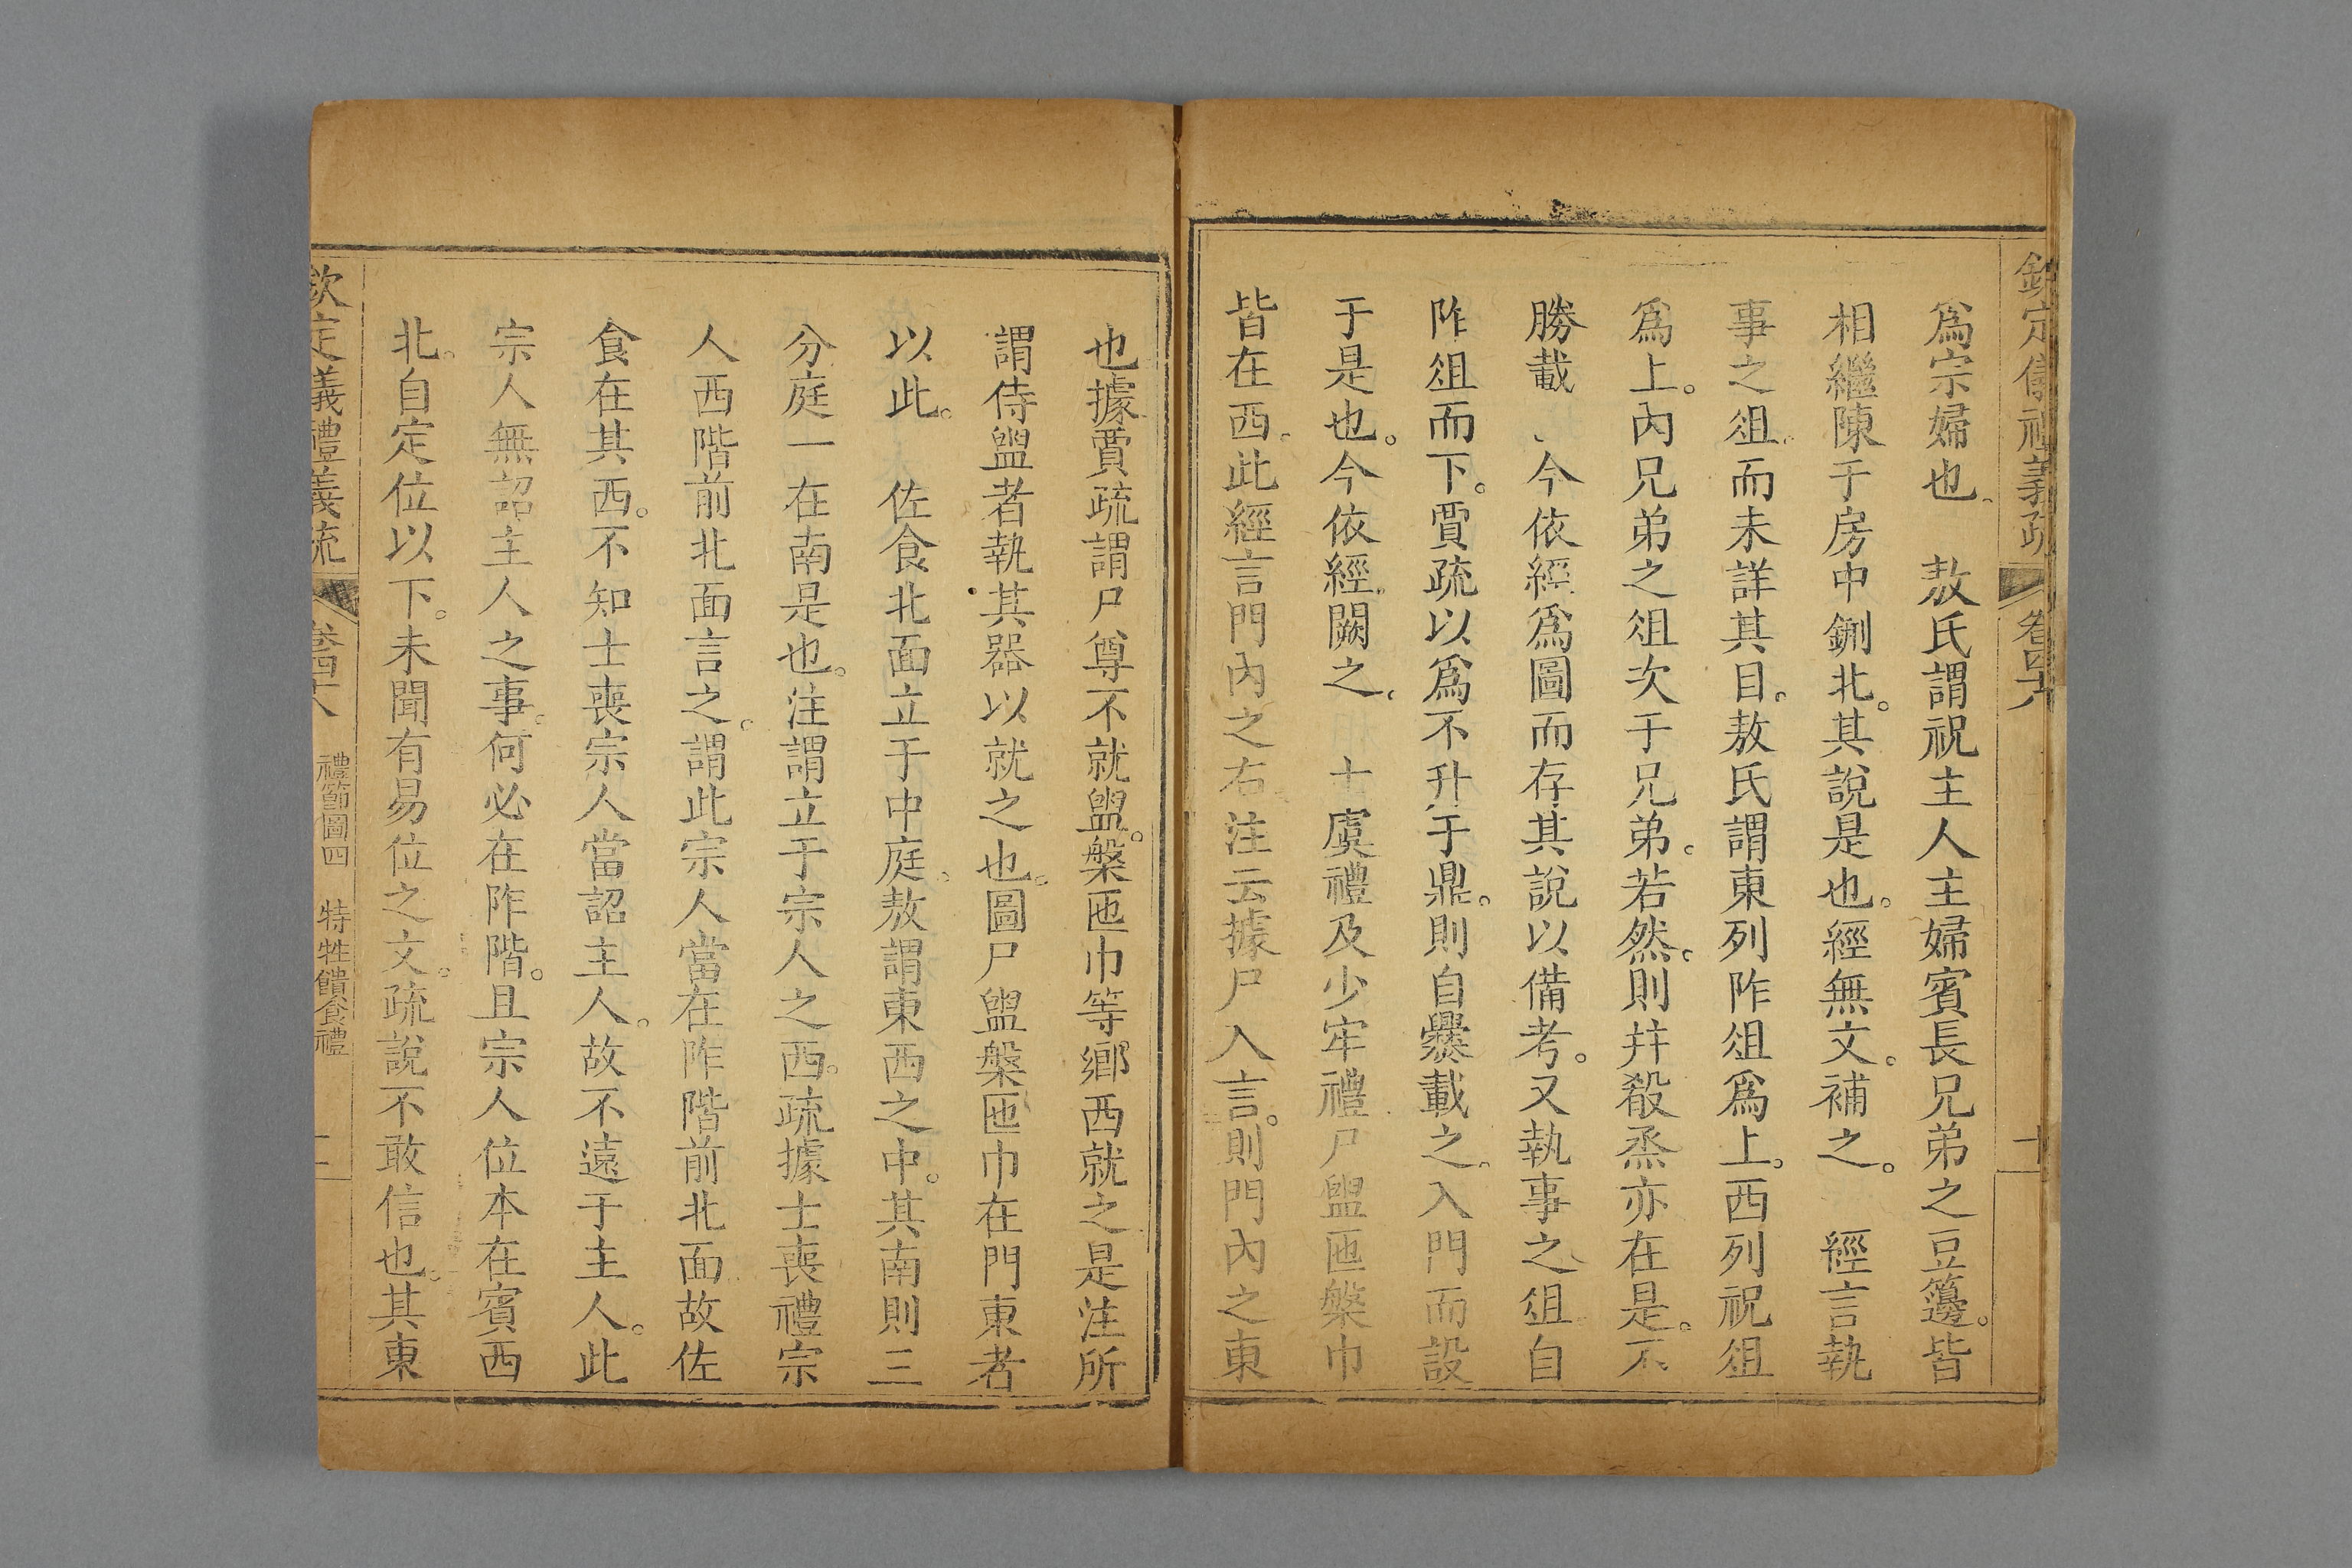 欽定儀禮義疏 卷四十八 十
爲宗婦也 敖氏謂祝主人主婦賓長兄弟之豆籩。皆
相繼陳于房中鉶北。其說是也。經無文。補之。 經言執
事之俎。而未詳其目。敖氏謂東列阼俎爲上。西列祝俎
爲上。內兄弟之俎次于兄弟。若然。則并殺烝亦在是。不
勝載、今依經爲圖而存其說以備考。又執事之俎。自
阼俎而下。賈疏以爲不升于鼎。則自爨載之。入門而設
于是也。今依經。闕之。 士虞禮及少牢禮尸盥匜槃巾
皆在西。此經言門內之右。注云據尸入言。則門內之東
也據賈疏謂尸尊不就盥。槃匜巾等鄉西就之是注所
謂侍盥者執其器以就之也。圖尸盥槃匜巾在門東者
以此。 佐食北面立于中庭。敖謂東西之中。其南則三
分庭一在南是也。注謂立于宗人之西。疏據士喪禮宗
人西階前北面言之。謂此宗人當在阼階前北面故佐
食在其西。不知士喪宗人當詔主人。故不遠于主人。此
宗人無詔主人之事。何必在阼階。且宗人位本在賓西
北。自定位以下。未聞有易位之文。疏說不敢信也。其東
欽定義禮義疏 卷四十八 禮節圖四 特牲饋食禮